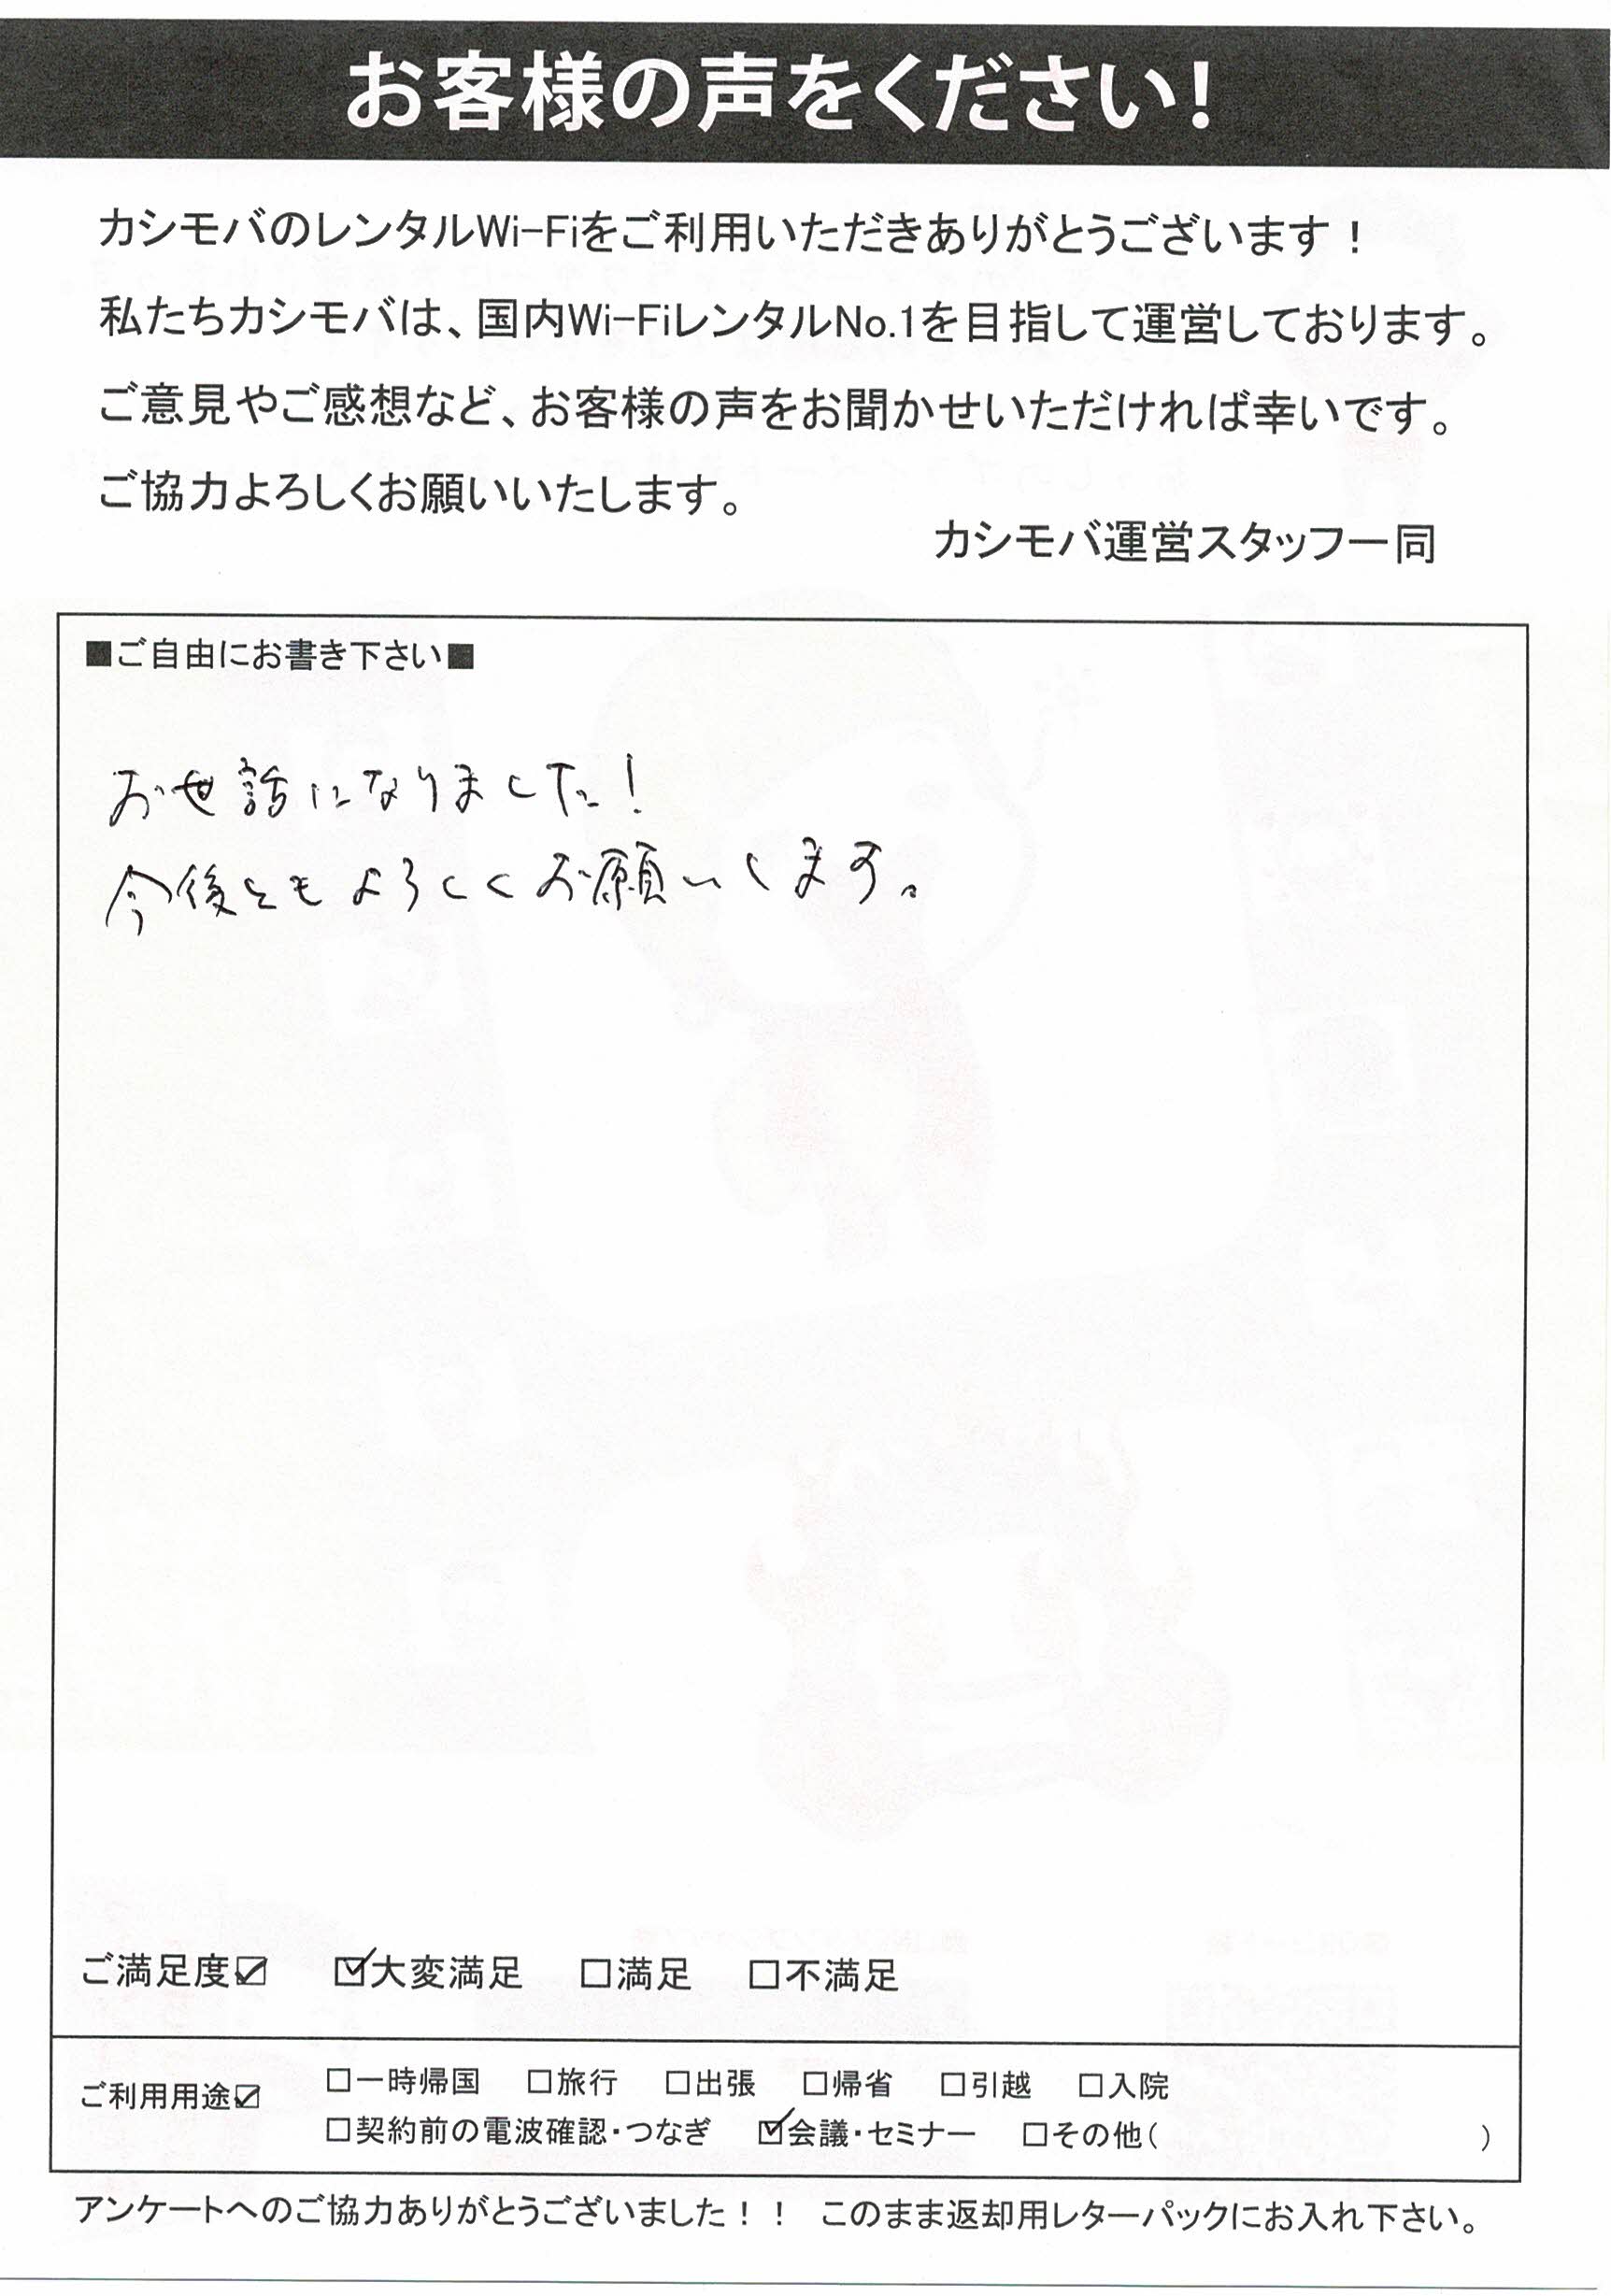 お客様の声をください!
カシモバのレンタルWi-Fiをご利用いただきありがとうございます！
私たちカシモバは、国内Wi-FiレンタルNo.1を目指して運営しております。
ご意見やご感想など、お客様の声をお聞かせいただければ幸いです。
ご協力よろしくお願いいたします。
カシモバ運営スタッフ一同
■ご自由にお書き下さい■
お世話になりました!
今後ともよろしくお願いします。
ご満足度☑ ☑大変満足 □満足 □不満足
ご利用用途☑ □一時帰国 □旅行 □出張 □帰省 □引越 □入院
□契約前の電波確認・つなぎ ☑会議・セミナー □その他( )
アンケートへのご協力ありがとうございました！！ このまま返却用レターパックにお入れ下さい。